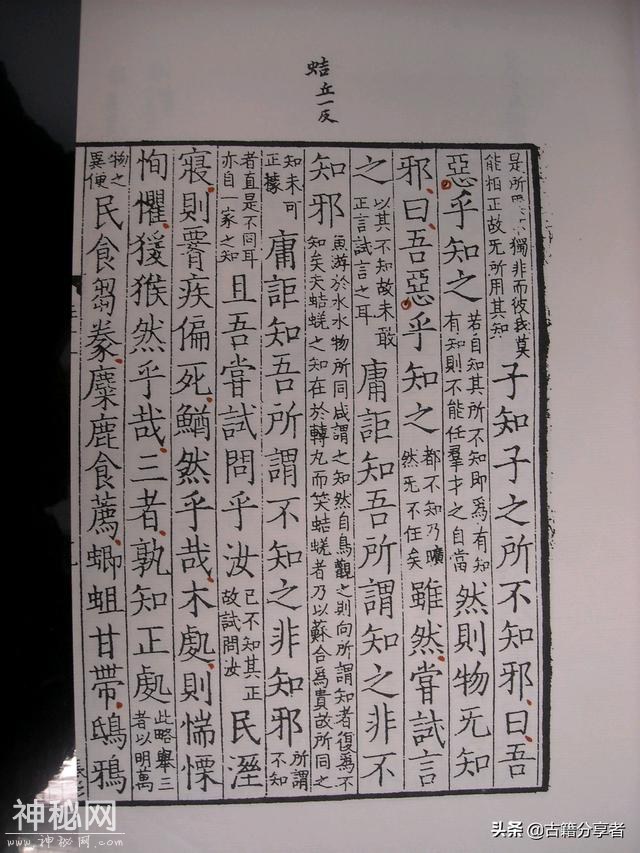 蛣丘一反
是所獨非而彼我莫
能相正故无所用其知
子知子之所不知邪曰吾
惡乎知之
若自知其所不知即爲有知
有知則不能任羣才之自當
然則物无知
邪曰吾惡乎知之
都不知乃曠
然无不任矣
雖然嘗試言
之
以其不知故未敢
正言試言之耳
庸詎知吾所謂知之非不
知邪
魚游於水水物所同咸謂之知然自鳥觀之則向所謂知者復爲不
知矣夫蛣蜣之知在於轉丸而笑蛣蜣者乃以蘇合爲貴故所同之
知未可
正據
庸詎知吾所謂不知之非知邪
所謂
不知
者直是不同耳
亦自一家之知
且吾嘗試問乎汝
已不知其正
故試問汝
民溼
寢則腰疾偏死鰌然乎哉木處則惴慄
恂懼猨猴然乎哉三者孰知正處
此略舉三
者以明萬
物之
異便
民食芻豢麋鹿食薦蝍蛆甘帶鴟鴉
神秘网
www.神秘网.com
头条 @古籍分享者